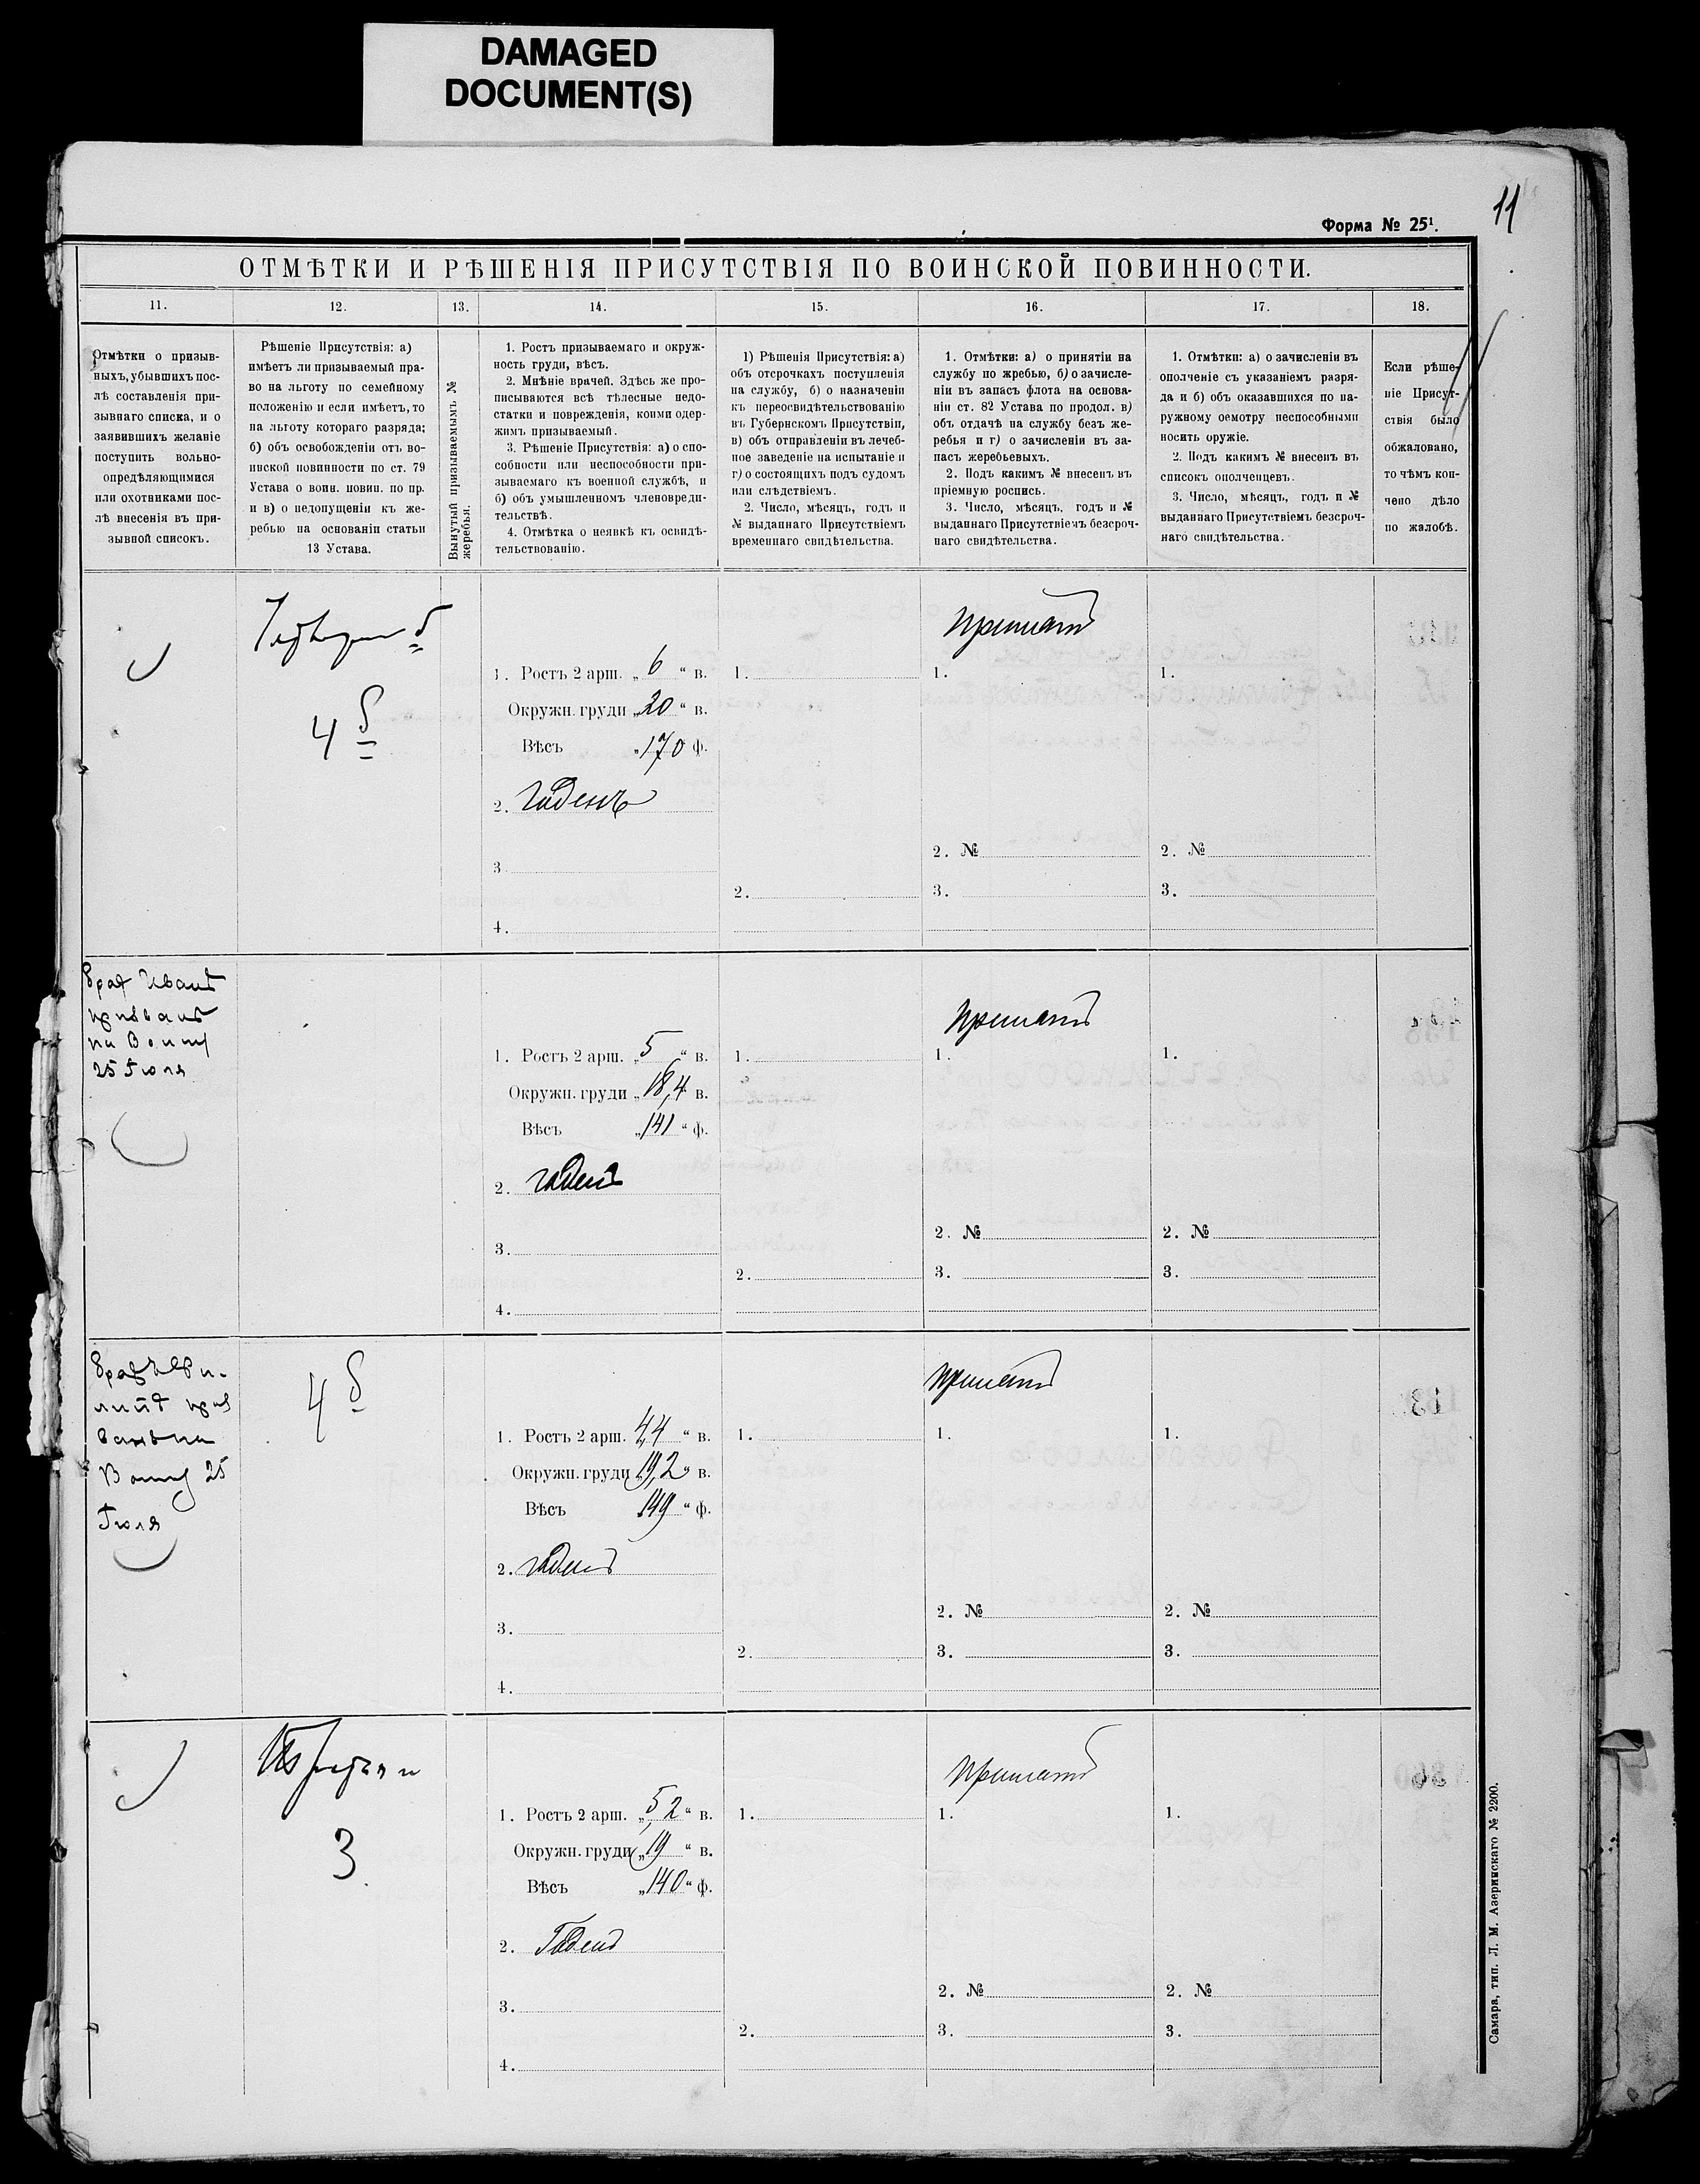 DAMAGED
DOCUMENT(S)
11
Форма № 25¹.
ОТМѢТКИ И РѢШЕНІЯ ПРИСУТСТВІЯ ПО ВОИНСКОЙ ПОВИННОСТИ.
11.
12.
13.
14.
15.
16.
17.
18.
Отмѣтки о призыв-
ныхъ, убывшихъ пос-
лѣ составленія при-
зывнаго списка, и о
заявившихъ желаніе
поступить вольно-
опредѣляющимися
или охотниками пос-
лѣ внесенія въ при-
зывной списокъ.
Рѣшеніе Присутствія: а)
имѣетъ ли призываемый пра-
во на льготу по семейному
положенію и если имѣетъ, то
на льготу котораго разряда;
б) объ освобожденіи отъ во-
инской повинности по ст. 79
Устава о воин. повин. по пр.
и в) о недопущеніи къ же-
ребью на основаніи статьи
13 Устава.
Вынутый призываемымъ №
жеребья.
1. Ростъ призываемаго и окруж-
ность груди, вѣсъ.
2. Мнѣніе врачей. Здѣсь же про-
писываются всѣ тѣлесные недо-
статки и поврежденія, коими одер-
жимъ призываемый.
3. Рѣшеніе Присутствія: а) о спо-
собности или неспособности при-
зываемаго къ военной службѣ, и
б) объ умышленномъ членовреди-
тельствѣ.
4. Отмѣтка о неявкѣ къ освидѣ-
тельствованію.
1) Рѣшенія Присутствія: а)
объ отсрочкахъ поступленія
на службу, б) о назначеніи
къ переосвидѣтельствованію
въ Губернскомъ Присутствіи,
в) объ отправленіи въ лечеб-
ное заведеніе на испытаніе и
г) о состоящихъ подъ судомъ
или слѣдствіемъ.
2. Число, мѣсяцъ, годъ и
№ выданнаго Присутствіемъ
временнаго свидѣтельства.
1. Отмѣтки: а) о принятіи на
службу по жребью, б) о зачисле-
ніи въ запасъ флота на основа-
ніи ст. 82 Устава по продол. в)
объ отдачѣ на службу безъ же-
ребья и г) о зачисленіи въ за-
пасъ жеребьевыхъ.
2. Подъ какимъ № внесенъ въ
пріемную роспись.
3. Число, мѣсяцъ, годъ и №
выданнаго Присутствіемъ безсроч-
наго свидѣтельства.
1. Отмѣтки: а) о зачисленіи въ
ополченіе съ указаніемъ разря-
да и б) объ оказавшихся по на-
ружному осмотру неспособными
носить оружіе.
2. Подъ какимъ № внесенъ въ
списокъ ополченцевъ.
3. Число, мѣсяцъ, годъ и №
выданнаго Присутствіемъ безсроч-
наго свидѣтельства.
Если рѣше-
ніе Присут-
ствія было
обжаловано,
то чѣмъ кон-
чено дѣло
по жалобѣ.
4 б
1. Ростъ 2 арш. „ 6 “ в.
Окружн. груди „ 20 “ в.
Вѣсъ „ 170 ф.
2. Годенъ
3.
4.
1.
2.
Принятъ
1.
2. №
3.
1.
2. №
3.
брат Иванъ
призванъ
на Войну
25 Іюля
1. Ростъ 2 арш. „ 5 “ в.
Окружн. груди „ 18,4 в.
Вѣсъ „ 141 “ ф.
2. годенъ
3.
4.
1.
2.
Принятъ
1.
2. №
3.
1.
2. №
3.
Войну 25
Іюля
4 б
1. Ростъ 2 арш. 4,4 “ в.
Окружн. груди 19,2 “ в.
Вѣсъ 149 “ ф.
2. годенъ
3.
4.
1.
2.
Принятъ
1.
2. №
3.
1.
2. №
3.
3
1. Ростъ 2 арш. „ 5,2 “ в.
Окружн. груди „ 19 “ в.
Вѣсъ „ 140 “ ф.
2. Годенъ
3.
4.
1.
2.
Принятъ
1.
2. №
3.
1.
2. №
3.
Самара, тип. Л. М. Азеринскаго № 2200.